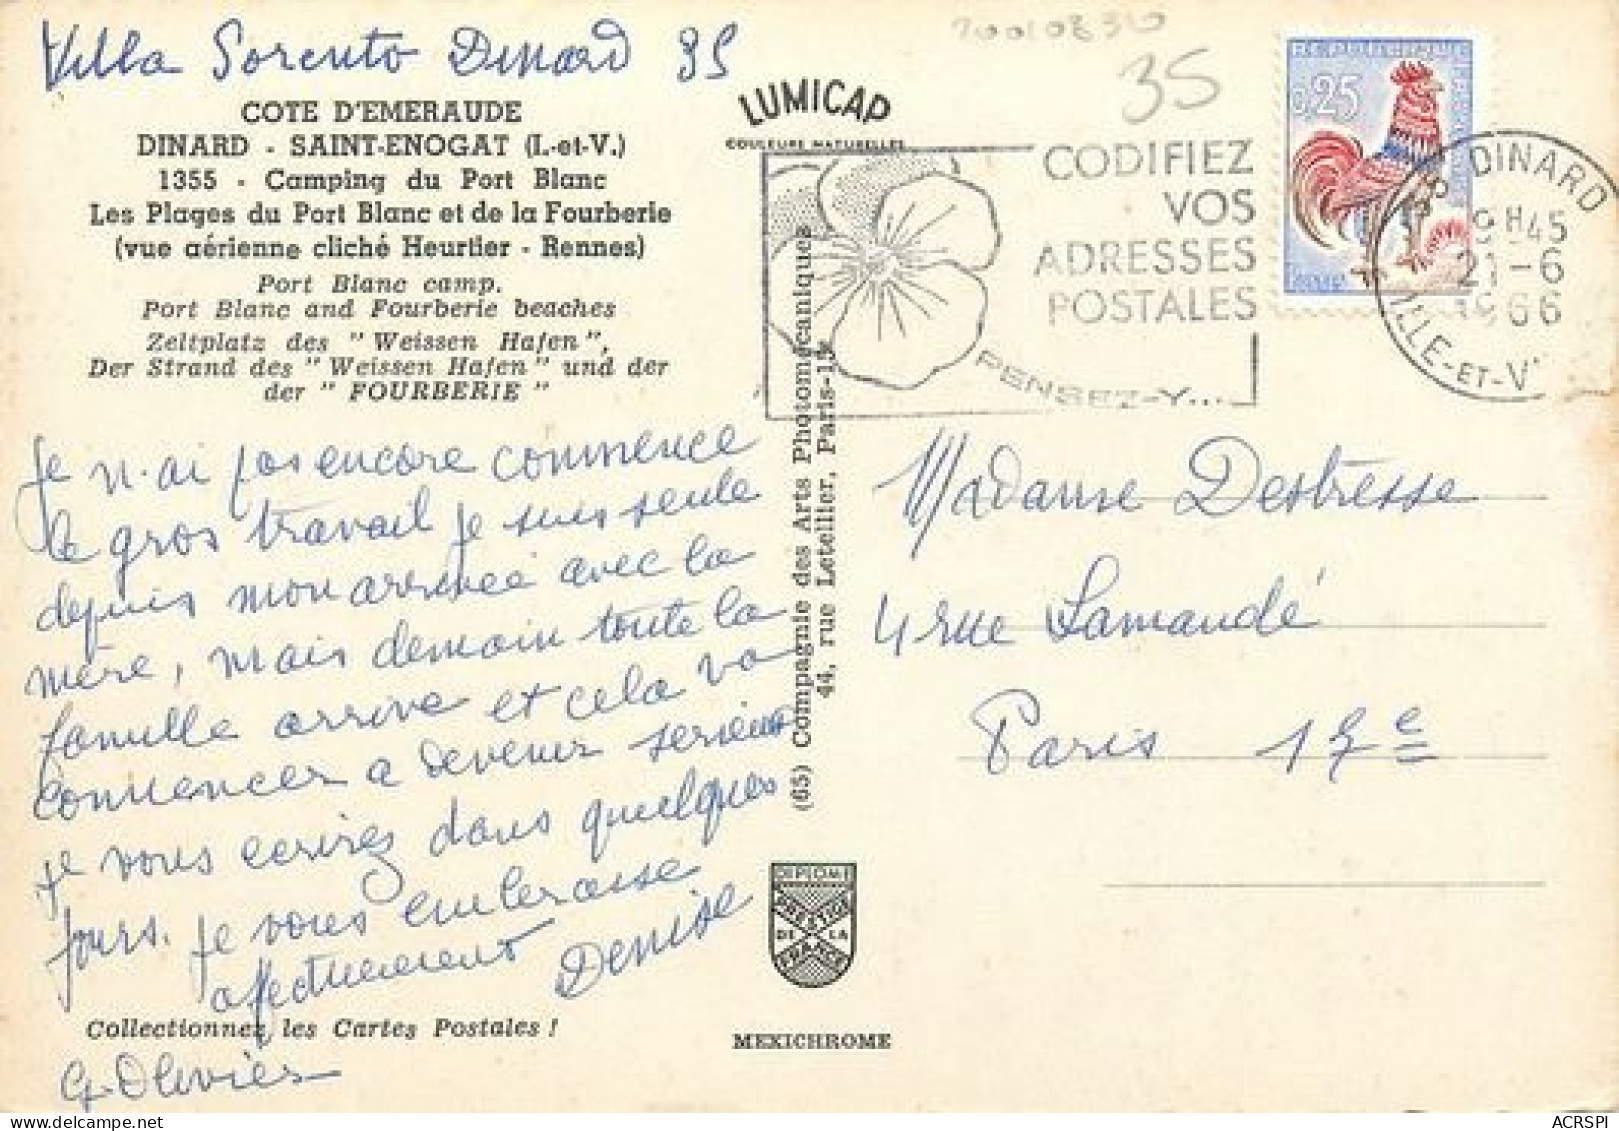 Villa Sorento Dinard 35
COTE D'EMERAUDE
DINARD - SAINT-ENOGAT (I.-et-V.)
1355 - Camping du Port Blanc
Les Plages du Port Blanc et de la Fourberie
(vue aérienne cliché Heurtier - Rennes)
Port Blanc camp.
Port Blanc and Fourberie beaches
Zeltplatz des " Weissen Hafen ",
Der Strand des " Weissen Hafen " und der
der " FOURBERIE "
Je n'ai pas encore commence
le gros travail je suis seule
depuis mon arrivée avec la
mère, mais demain toute la
famille arrive et cela va
commencer a devenir serieux
je vous ecrirez dans quelques
jours. Je vous embrasse
affectueusement Denise
Collectionnez les Cartes Postales !
G. Olivier
20010830
35
LUMICAP
COULEURS NATURELLES
CODIFIEZ
VOS
ADRESSES
POSTALES
PENSEZ-Y...
0,25
35 DINARD
19H45
21-6
1966
ILLE-ET-V
(65) Compagnie des Arts Photomécaniques
44, rue Letellier, Paris-15e
Madame Destresse
4 rue Lamandé
Paris 17e
DIPLOME
PRESTIGE
DE LA
FRANCE
MEXICHROME
ACRSPI